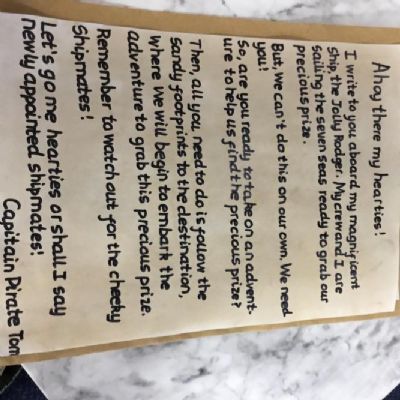 Ahoy there my hearties!
I write to you aboard my magnificent
Ship, the Jolly Rodger. My crew and I are
sailing the seven seas ready to grab our
precious prize.
But, we can't do this on our own. We need
you!
So, are you ready to take on an advent-
ure to help us find the precious prize?
Then, all you need to do is follow the
sandy footprints to the destination,
where we will begin to embark the
adventure to grab this precious prize.
Remember to watch out for the cheeky
Shipmates!
Let's go me hearties or shall I say
newly appointed shipmates!
Capitain Pirate Tom